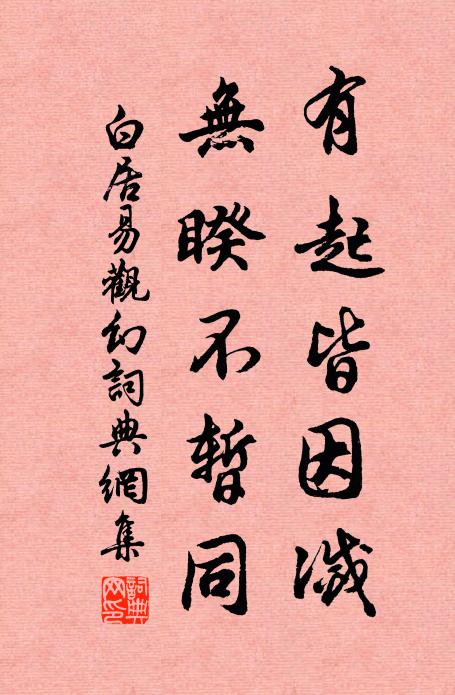 有起皆因滅
無睽不暫同
白居易觀幻詞典網集
詞典網印